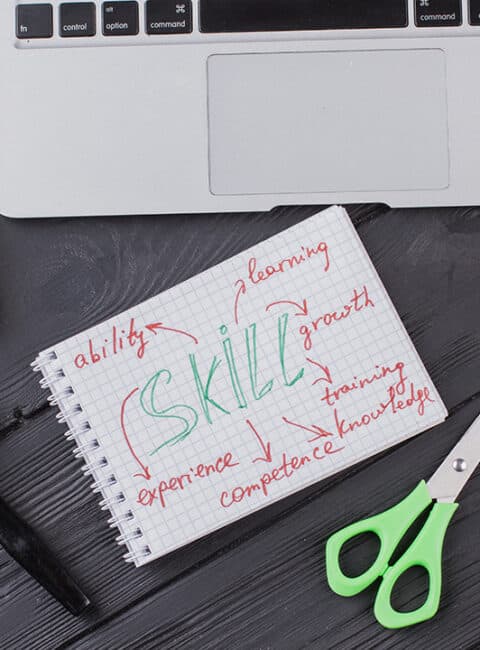 fn
control
alt
option
⌘
command
⌘
command
learning
ability
growth
SKILL
training
knowledge
experience
competence